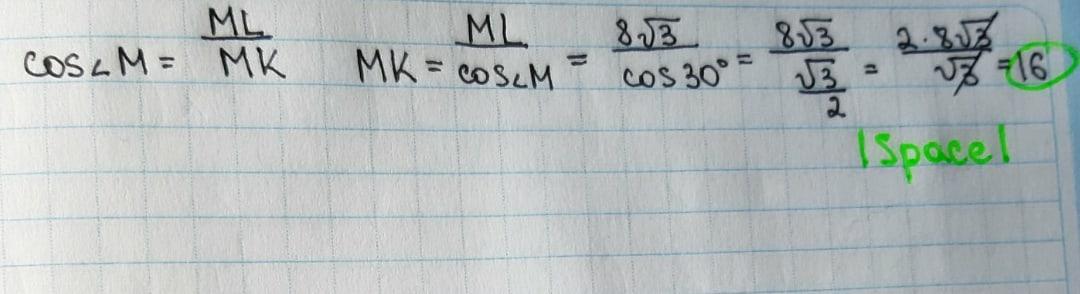 cos∠M = ML/MK MK = ML/cos∠M = 8√3/cos30° = 8√3/(√3/2) = 2·8√3/√3 = 16
|Space|